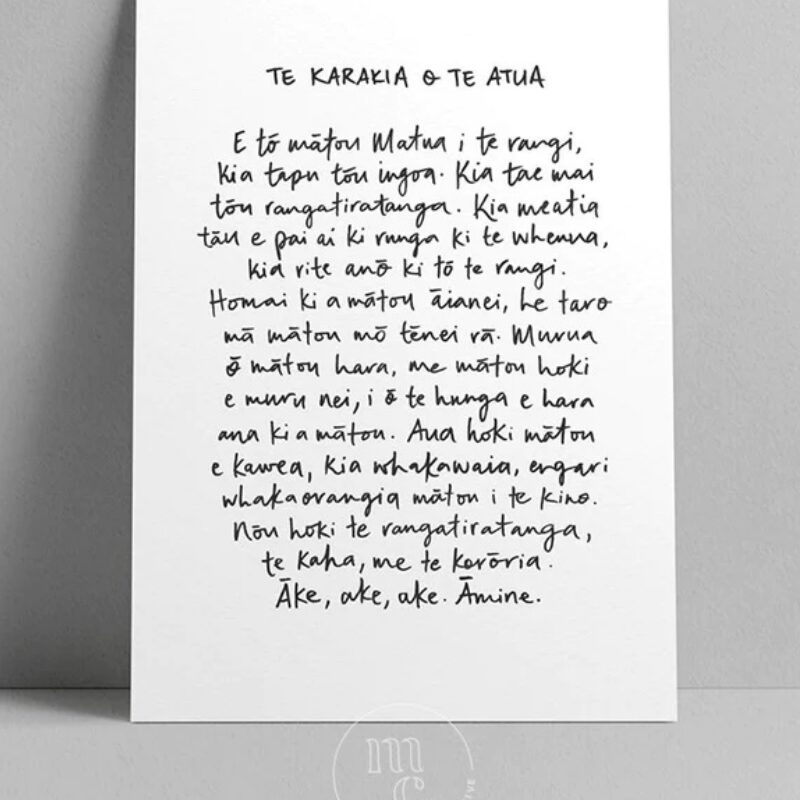 TE KARAKIA O TE ATUA
E tō mātou Matua i te rangi,
kia tapu tōu ingoa. Kia tae mai
tōu rangatiratanga. Kia meatia
tāu e pai ai ki runga ki te whenua,
kia rite anō ki tō te rangi.
Homai ki a mātou āianei, he taro
mā mātou mō tēnei rā. Murua
ō mātou hara, me mātou hoki
e muru nei, i ō te hunga e hara
ana ki a mātou. Aua hoki mātou
e kawea, kia whakawaia, engari
whakaorangia mātou i te kino.
Nōu hoki te rangatiratanga,
te kaha, me te korōria.
Āke, ake, ake. Āmine.
mc